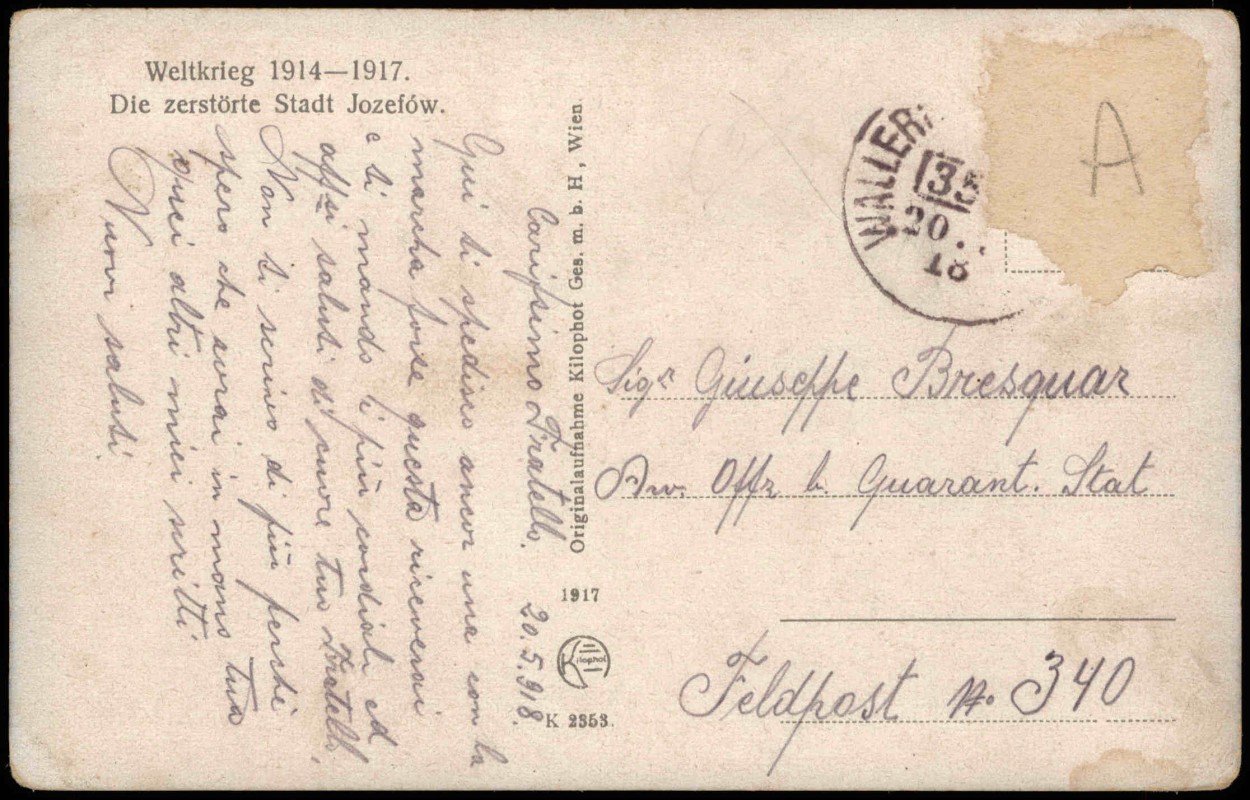 Weltkrieg 1914—1917.
Die zerstörte Stadt Jozefów.
Carissimo Fratello. 20.5.918.
Qui ti spedisco ancor una con la
marcha forse questa riceverai
e ti mando i più cordiali ed
affsi saluti di cuore tuo Fratello,
Non ti scrivo di più perchè
spero che avrai in mano tua
quei altri miei scritti
Nuovi saluti.
Originalaufnahme Kilophot Ges. m. b. H, Wien.
1917
Kilophot
K 2353.
A
WALLER
35
20
18
Sigr Giuseppe Bresquar
Offz b. Quarant. Stat
Feldpost No 340